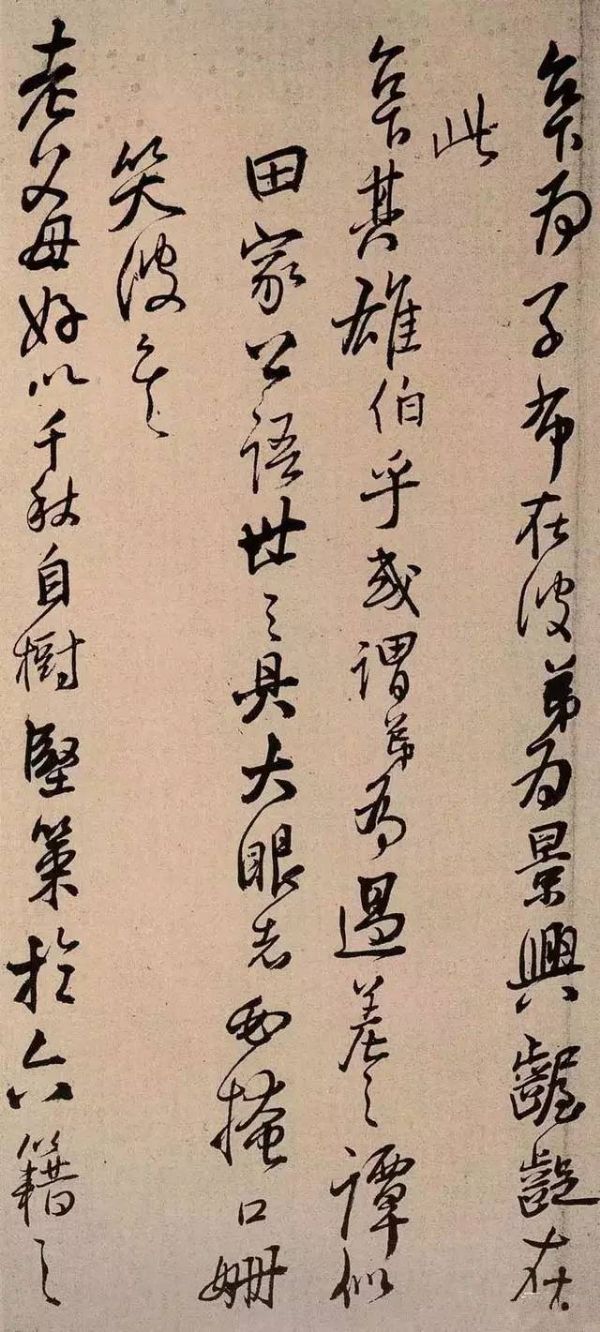 台下為子布在彼弟為景興齷齪在
此
台下其雄伯乎或謂弟為過差之譚似
田家公語世之具大眼者掩口姍
笑彼
老父母好以千秋自樹堅策於六籍之